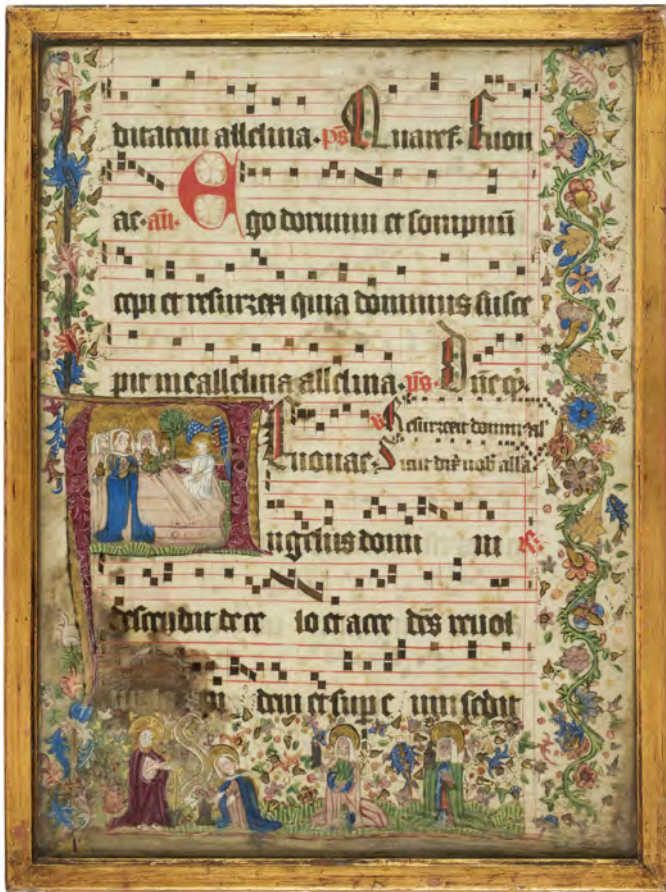 ditatem alleluia. ps Quare f. Euou
ae. añ. Ego dormiui et sompnū
cepi et resurrexi quia dominus susce
pit me alleluia alleluia. ps Dñe q
v Resurrexit domin al
Euouae. Sicut dix̄ nob alla
Angelus domi ni R
descendit de ce lo et acce dēs reuol
dem et sup e um sedit